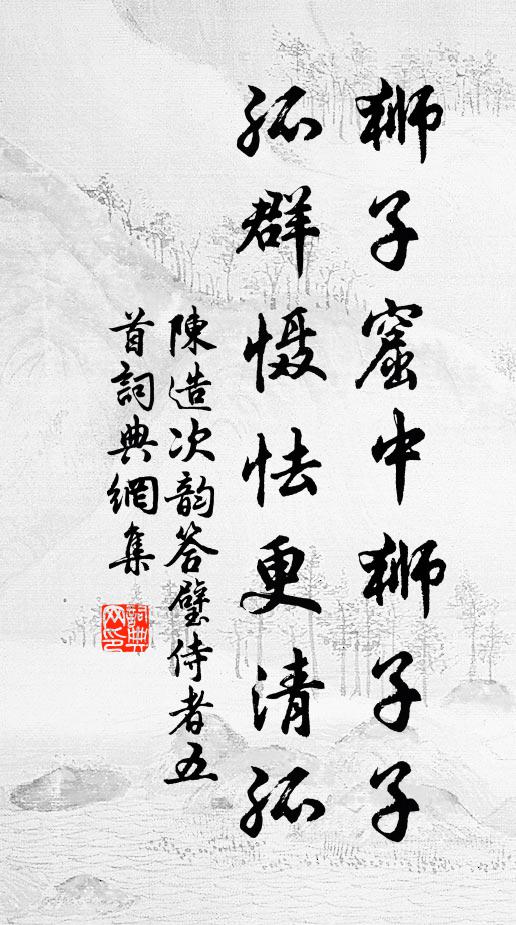 獅子窟中獅子子
孤群慑怯更清孤
陳造次韵答璧侍者五
首詞典網集
詞典
网印